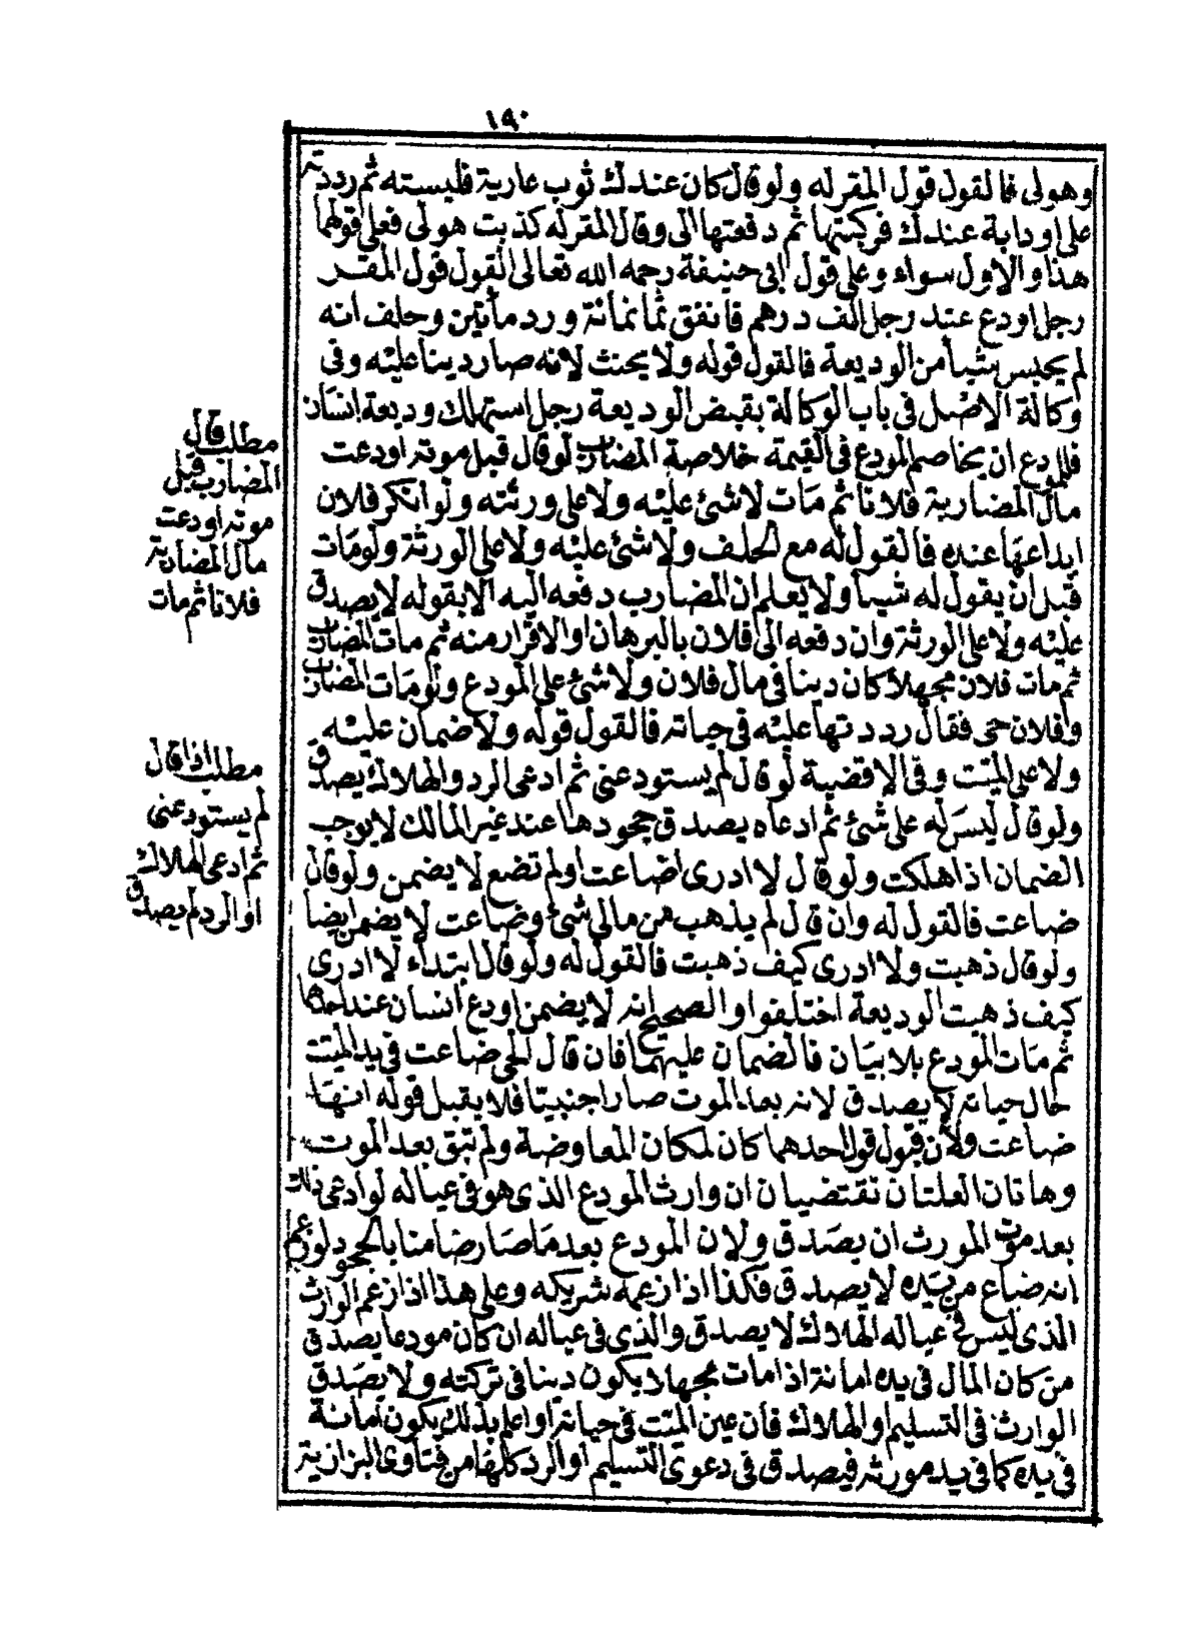 ١٩٠
وهو لى فالقول قول المقر له ولو قال كان عندك ثوب عارية فلبسته ثم رددته
على او دابة عندك فركبتها ثم دفعتها الى وقال المقر له كذبت هو لى فعلى قولهما
هذا والاول سواء وعلى قول ابى حنيفة رحمه الله تعالى القول قول المقر
رجل اودع عند رجل الف درهم فانفق ثمانمائة ورد مأتين وحلف انه
لم يحبس شيأ من الوديعة فالقول قوله ولا يحنث لانه صار دينا عليه وفى
وكالة الاصل فى باب الوكالة بقبض الوديعة رجل استهلك وديعة انسان
فللمودع ان يخاصم المودع فى القيمة خلاصة المضارب لو قال قبل موته اودعت
مال المضاربة فلانا ثم مات لا شئ عليه ولا على ورثته ولو انكر فلان
ايداعها عنده فالقول له مع الحلف ولا شئ عليه ولا على الورثة ولو مات
قبل ان يقول له شيأ ولا يعلم ان المضارب دفعه اليه الا بقوله لا يصدق
عليه ولا على الورثة وان دفعه الى فلان بالبرهان او الاقرار منه ثم مات المضارب
ثم مات فلان مجهلا كان دينا فى مال فلان ولا شئ على المودع ولو مات المضارب
وفلان حى فقال رددتها عليه فى حياته فالقول قوله ولا ضمان عليه
ولا على الميت وفى الاقضية لو قال لم يستودعنى ثم ادعى الرد والهلاك يصدق
ولو قال ليس له على شئ ثم ادعاه يصدق جحودها عند غير المالك لا يوجب
الضمان اذا هلكت ولو قال لا ادرى اضاعت او لم تضع لا يضمن ولو قال
ضاعت فالقول له وان قال لم يذهب من مالى شئ وضاعت لا يضمن ايضا
ولو قال ذهبت ولا ادرى كيف ذهبت فالقول له ولو قال ابتداء لا ادرى
كيف ذهبت الوديعة اختلفوا والصحيح انه لا يضمن اودع انسان عند احدهما
ثم مات المودع بلا بيان فالضمان عليهما فان قال الحى ضاعت فى يد الميت
حال حياته لا يصدق لانه بعد الموت صار اجنبيتا فلا يقبل قوله انها
ضاعت ولأن قبول قول احدهما كان لمكان المعاوضة ولم تبق بعد الموت
وهاتان العلتان تقتضيان ان وارث المودع الذى هو فى عياله لو ادعى ذلك
بعد موت المورث ان يصدق ولان المودع بعد ما صار ضامنا بالجحود لو زعم
انه ضاع من يده لا يصدق فكذا اذا زعمه شريكه وعلى هذا اذا زعم الوارث
الذى ليس فى عياله الهلاك لا يصدق والذى فى عياله ان كان مودعا يصدق
من كان المال فى يده امانة اذا مات مجهلا يكون دينا فى تركته ولا يصدق
الوارث فى التسليم او الهلاك فان عين الميت فى حياته او اعلم بذلك يكون امانة
فى يده كما فى يد مورثه فيصدق فى دعوى التسليم او الرد كلها من فتاوى البزازية
مطلب قال
المضارب قبل
موته اودعت
مال المضاربة
فلانا ثم مات
مطلب اذا قال
لم يستودعنى
ثم ادعى الهلاك
او الرد لم يصدق